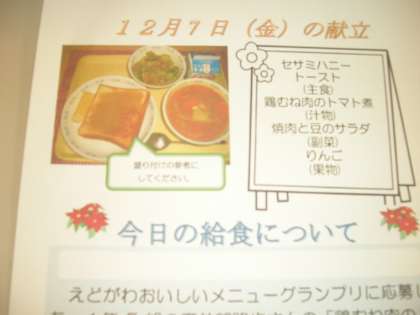 12月7日（金）の献立
セサミハニー
トースト
(主食)
鶏むね肉のトマト煮
(汁物)
焼肉と豆のサラダ
(副菜)
りんご
(果物)
盛り付けの参考に
してください。
今日の給食について
えどがわおいしいメニューグランプリに応募し